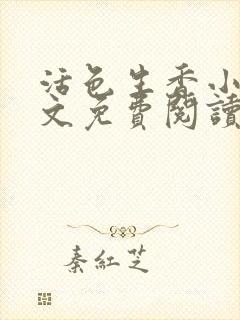 活色生香小
文免費閱讀
秦紅芝